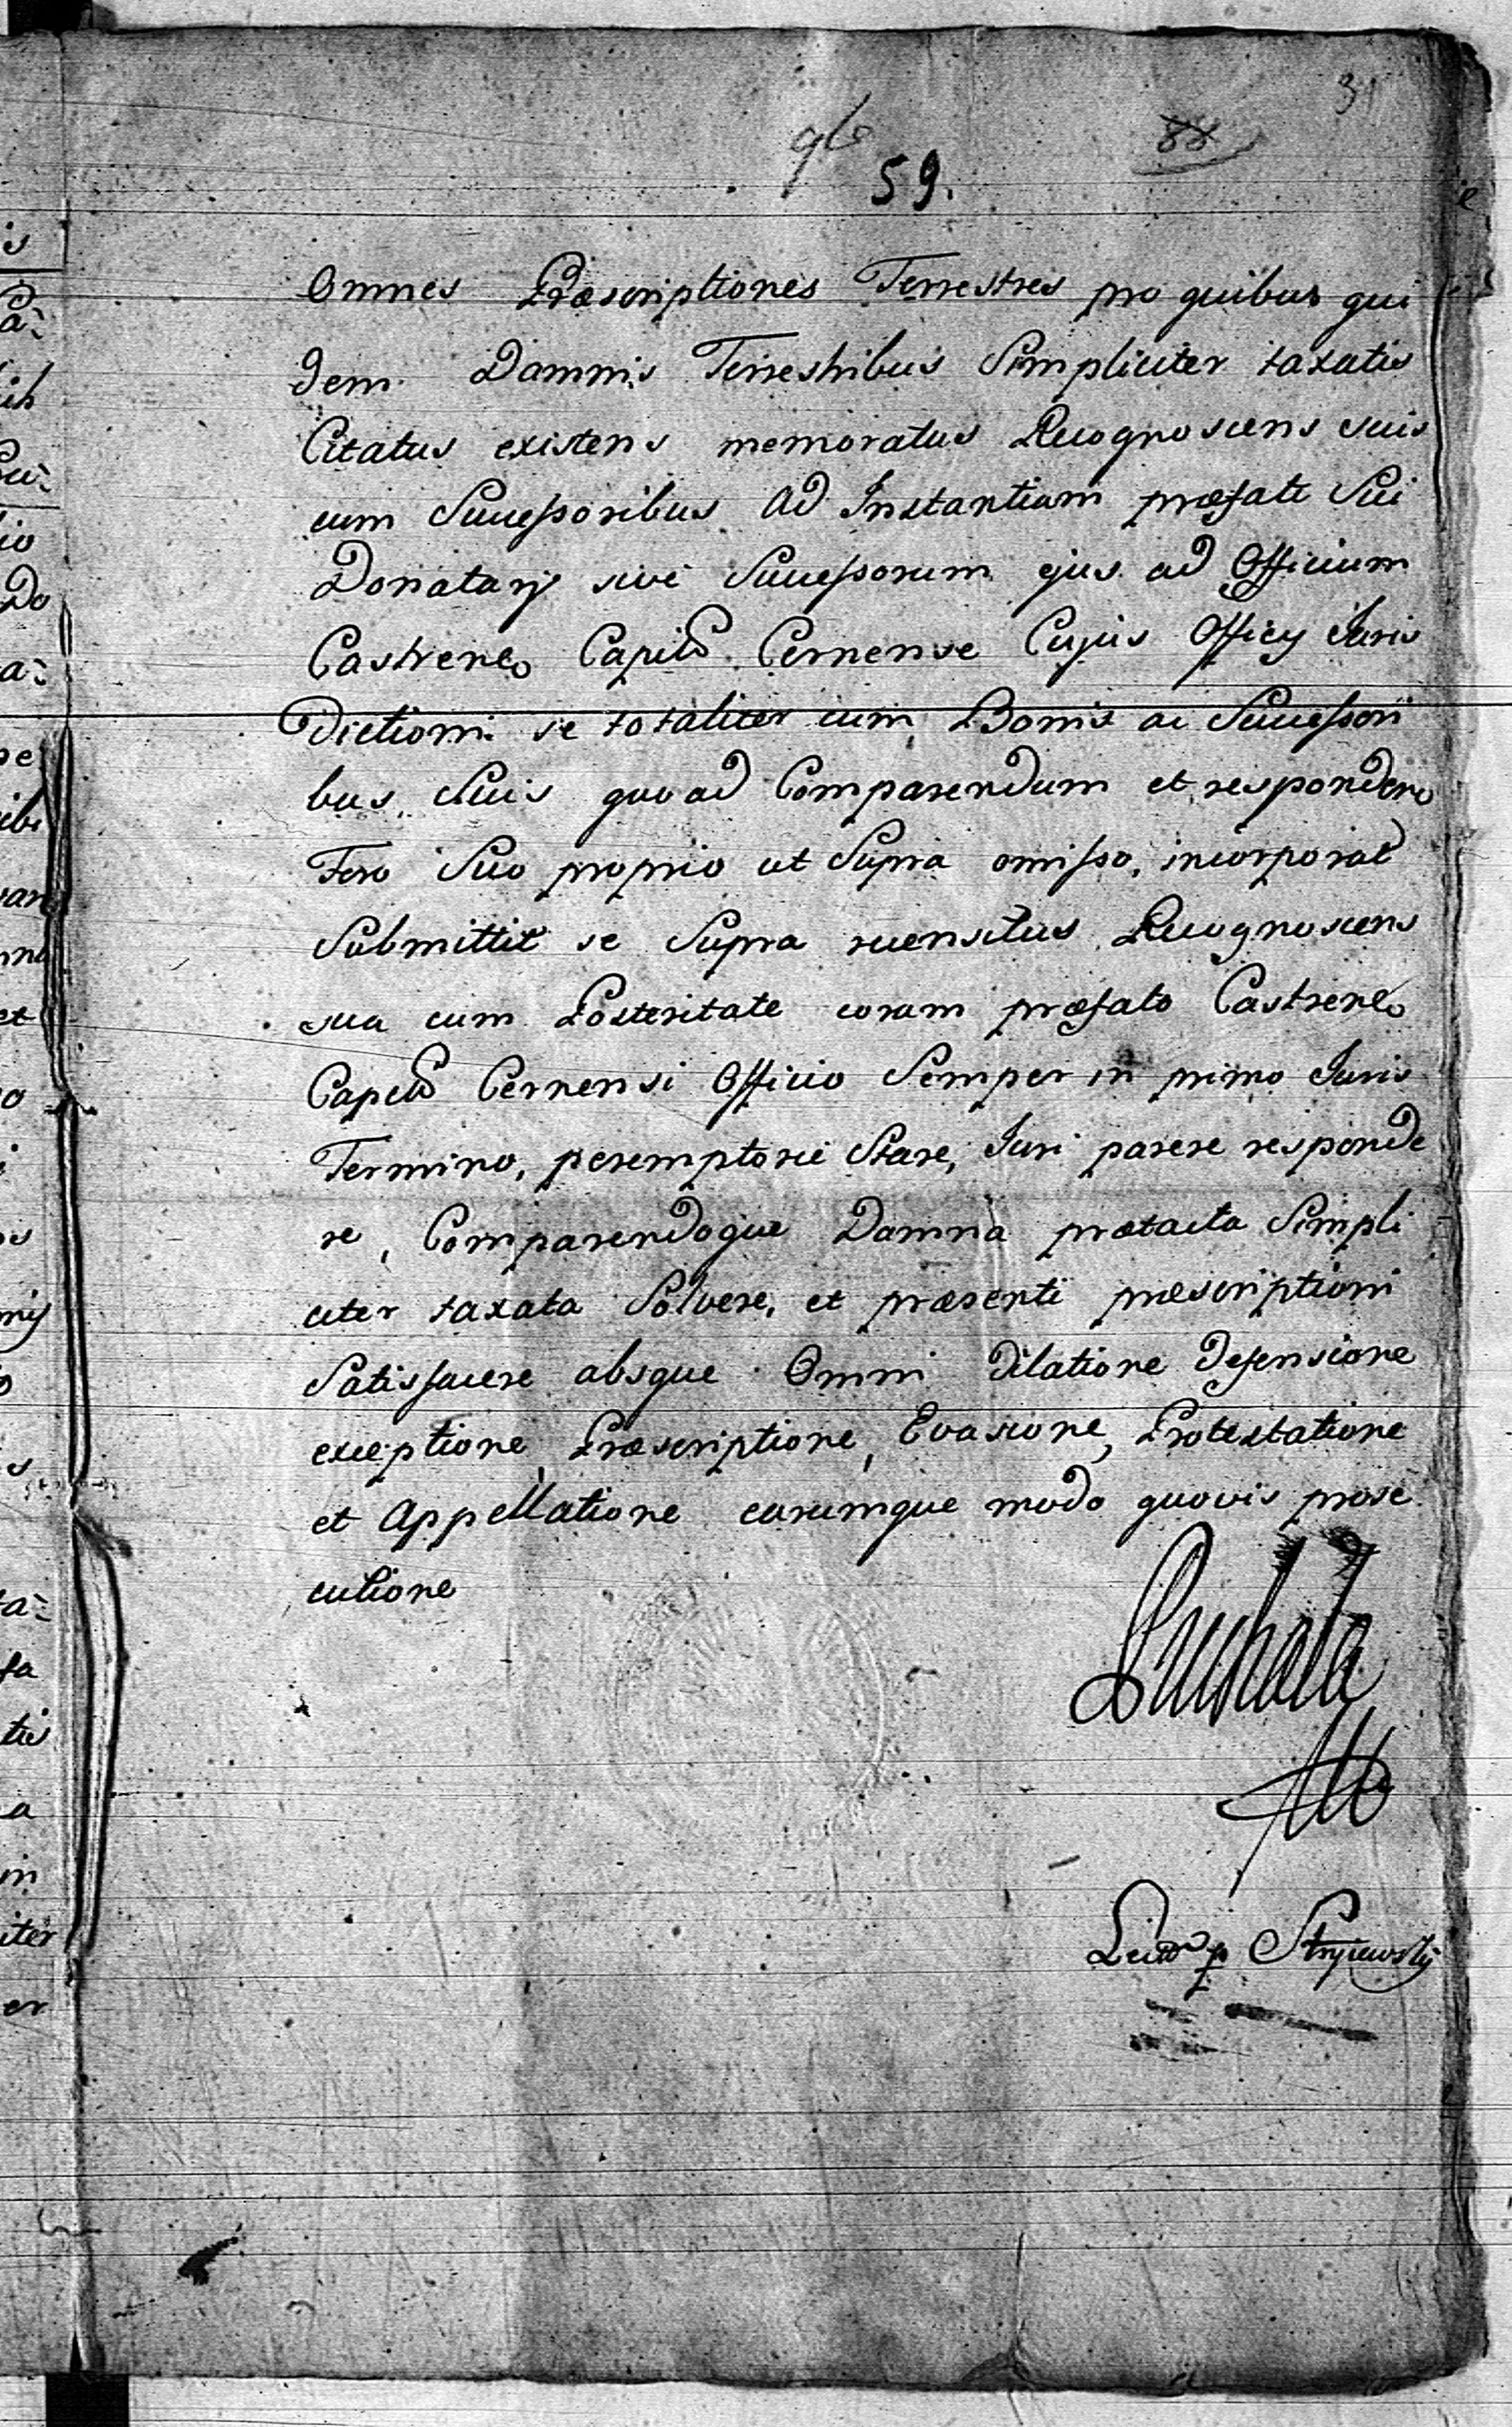 31
96
88
59.
Omnes Præscriptiones Terrestres pro quibus qui
dem Damnis Terrestribus Simpliciter taxatis
Citatus existens memoratus Recognoscens suis
cum Successoribus Ad Instantiam præfati Sui
Donatarij sive Successorum ejus ad Officium
Castrense Capitle Cernense Cujus Officy Juris
Dictioni se totaliter cum Bonis ac Successori
bus Suis quoad Comparendum et respondere
Foro Suo proprio ut Supra omisso, incorporat
Submittit se Supra recensitus Recognoscens
sua cum Posteritate coram præfato Castrene
Capitle Cernensi Officio Semper in primo Juris
Termino, peremptorie Stare, Juri parere responde
re, Comparendoque Damna prætacta Simpli
citer taxata Solvere, et præsenti præscriptioni
Satisfacere absque Omni Dilatione Defensione
exceptione, Præscriptione, Evasione, Protestatione
et Appellatione earumque modo quovis prose
cutione